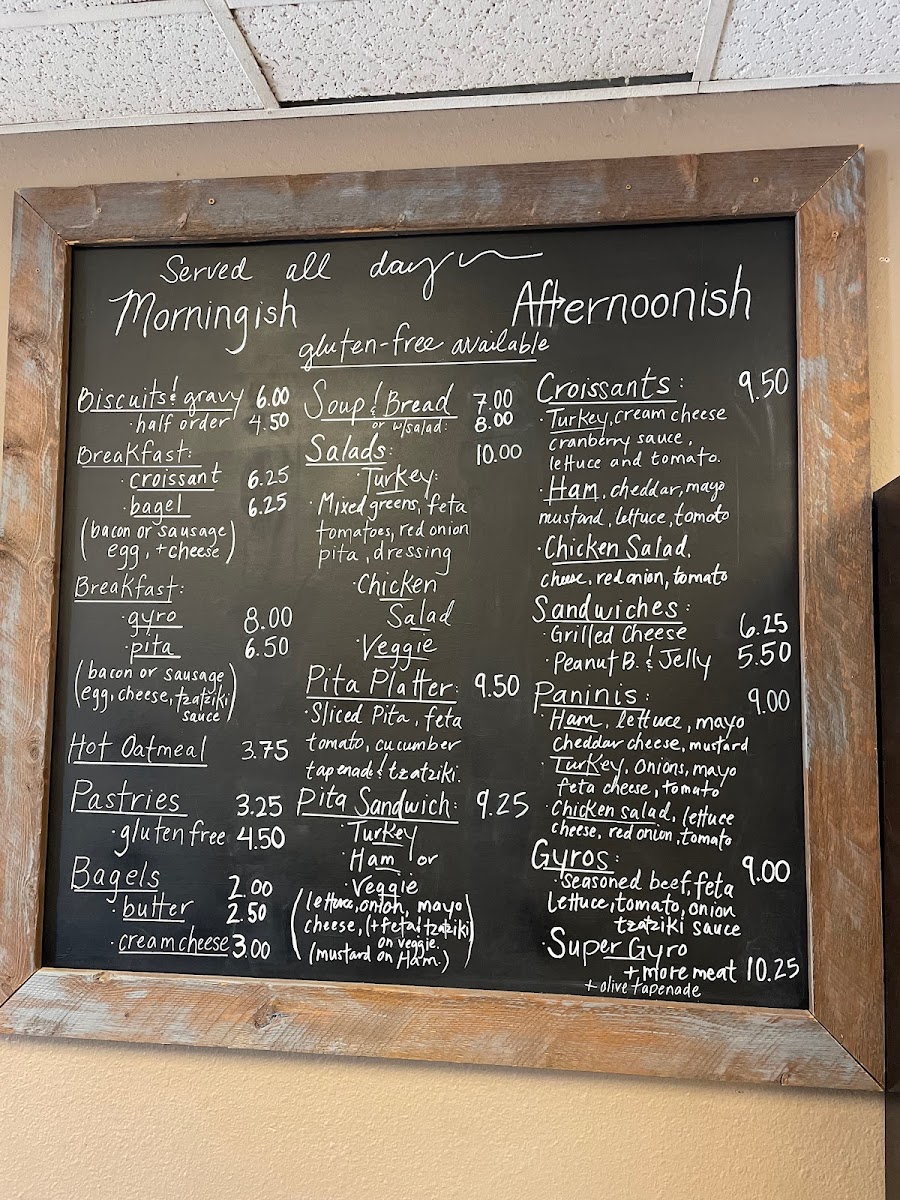 Served all day
Morningish
Afternoonish
gluten-free available
Biscuits & gravy 6.00
· half order 4.50
Breakfast:
· croissant 6.25
· bagel 6.25
(bacon or sausage
egg, + cheese)
Breakfast:
· gyro 8.00
· pita 6.50
(bacon or sausage
egg, cheese, tzatziki
sauce)
Hot Oatmeal 3.75
Pastries 3.25
· gluten free 4.50
Bagels 2.00
· butter 2.50
· cream cheese 3.00
Soup & Bread 7.00
or w/salad: 8.00
Salads: 10.00
Turkey:
· Mixed greens, feta
tomatoes, red onion
pita, dressing
· Chicken
Salad
· Veggie
Pita Platter: 9.50
· Sliced Pita, feta
tomato, cucumber
tapenade & tzatziki.
Pita Sandwich: 9.25
· Turkey
Ham or
· Veggie
(lettuce, onion, mayo
cheese, (+feta & tzatziki)
on veggie.
(mustard on Ham.)
Croissants: 9.50
· Turkey, cream cheese
cranberry sauce,
lettuce and tomato.
· Ham, cheddar, mayo
mustard, lettuce, tomoto
· Chicken Salad,
cheese, red onion, tomato
Sandwiches:
· Grilled Cheese 6.25
· Peanut B. & Jelly 5.50
Paninis: 9.00
· Ham, lettuce, mayo
cheddar cheese, mustard
· Turkey, onions, mayo
feta cheese, tomato
· Chicken salad, lettuce
cheese, red onion, tomato
Gyros: 9.00
· seasoned beef, feta
lettuce, tomato, onion
tzatziki sauce
· Super Gyro
+ more meat 10.25
+ olive tapenade